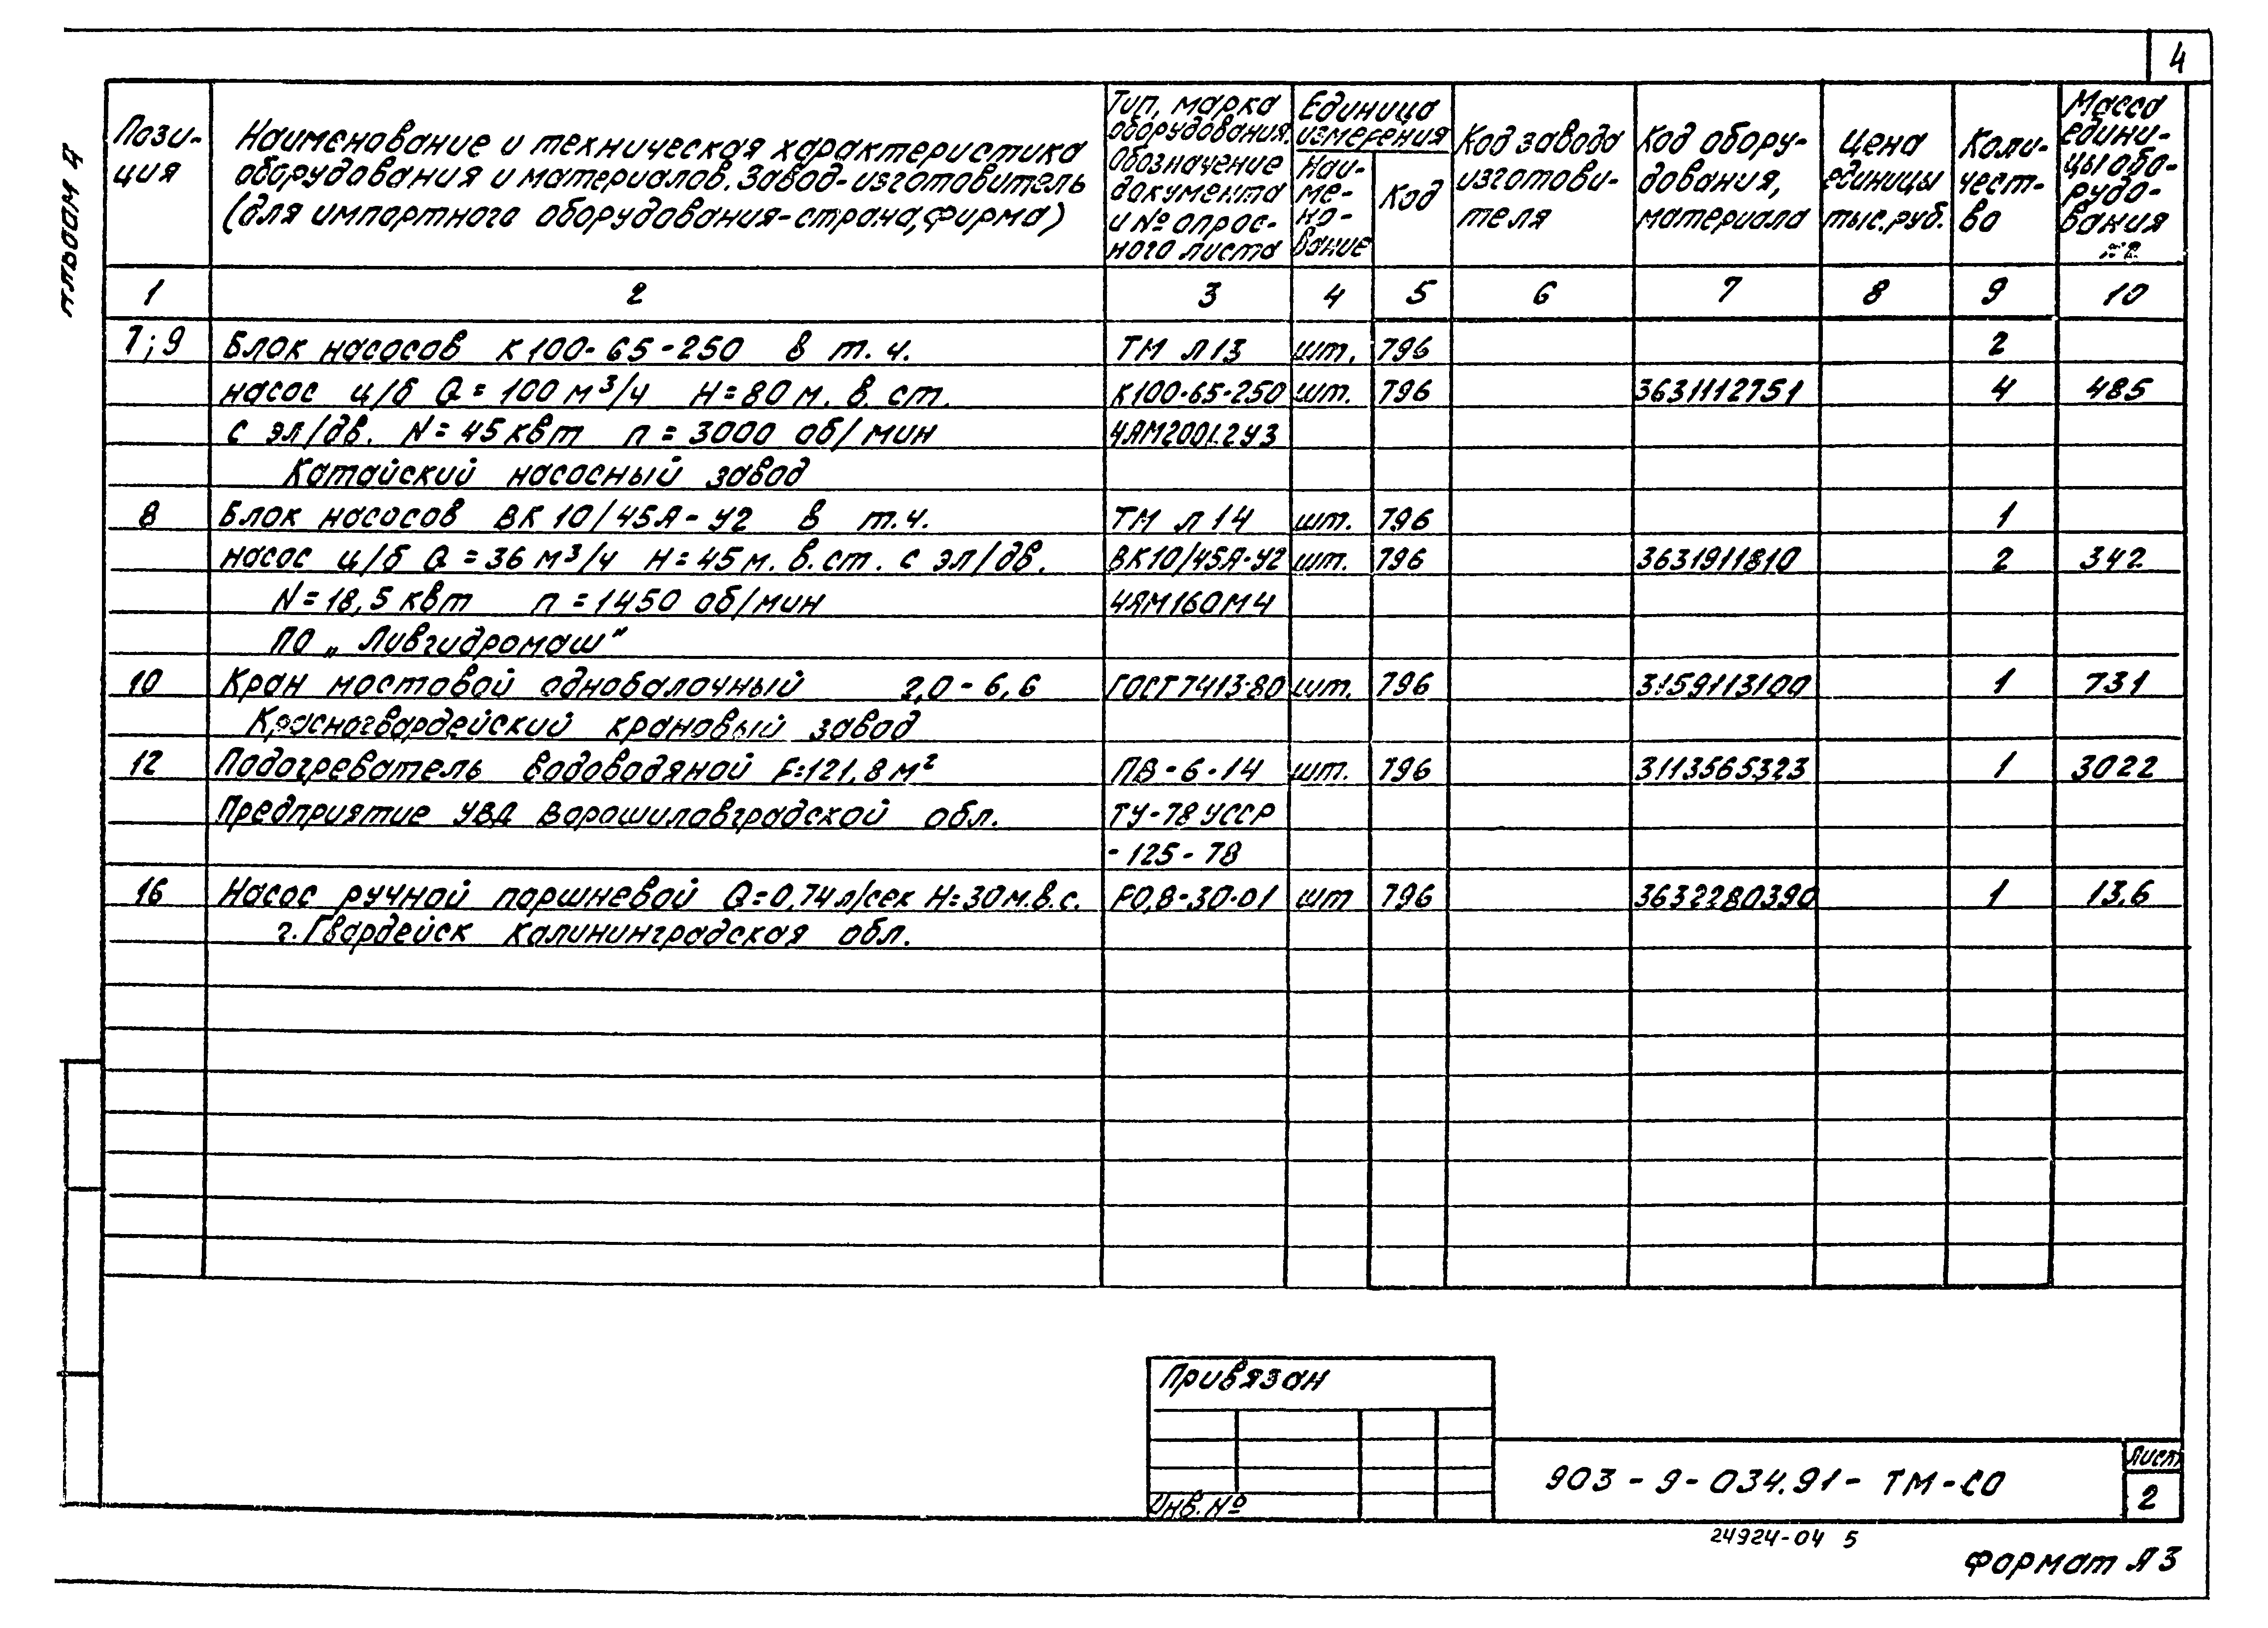 4
Альбом 4
Пози-
ция
Наименование и техническая характеристика
оборудования и материалов. Завод-изготовитель
(для импортного оборудования-страна, фирма)
Тип, марка
оборудования.
Обозначение
документа
и № опрос-
ного листа
Единица
измерения
Наи-
ме-
но-
вание
Код
Код завода
изготови-
теля
Код обору-
дования,
материала
Цена
единицы
тыс.руб.
Коли-
чест-
во
Масса
едини-
цы обо-
рудо-
вания
1 2 3 4 5 6 7 8 9 10
7; 9 Блок насосов К100-65-250 в т.ч. ТМ л13 шт. 796 2
насос ц/б Q=100 м³/ч H=80 м. в. ст. К100-65-250 шт. 796 3631112751 4 485
с эл/дв. N=45 квт n=3000 об/мин 4АМ200L2У3
Катайский насосный завод
8 Блок насосов ВК 10/45А-У2 в т.ч. ТМ л14 шт. 796 1
насос ц/б Q=36 м³/ч H=45 м. в. ст. с эл/дв. ВК10/45А-У2 шт. 796 3631911810 2 342
N=18,5 квт n=1450 об/мин 4АМ160М4
ПО „Ливгидромаш“
10 Кран мостовой однобалочный 2,0-6,6 ГОСТ 7413-80 шт. 796 3159113100 1 731
Красногвардейский крановый завод
12 Подогреватель водоводяной F=121,8 м² ПВ-6-14 шт. 796 3113565323 1 3022
Предприятие УВД Ворошиловградской обл. ТУ-78 УССР
-125-78
16 Насос ручной поршневой Q=0,74 л/сек H=30 м.в.с. Р0,8-30-01 шт 796 3632280390 1 13.6
г. Гвардейск Калининградская обл.
Привязан
Инв. №
903-9-034.91-ТМ-СО
Лист
2
24924-04 5
Формат А3